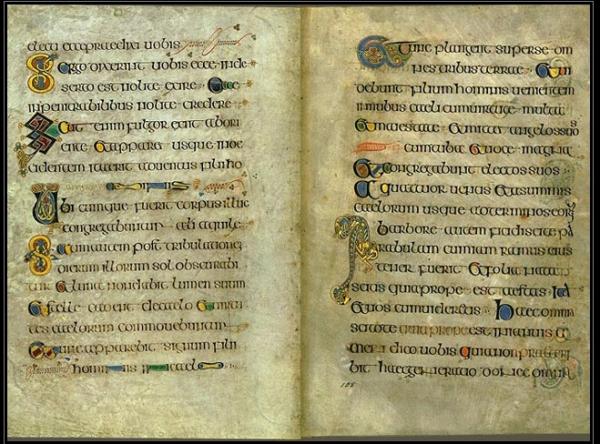 uobis
ergo dixerint uobis ecce inde
serto est nolite exire ecce
in penitrabilibus nolite credere
Sicut enim fulgor exit ab ori
ente et apparet usque in oc
cidentem ita erit aduentus fili ho
minis
Ubi cumque fuerit corpus illuc
congregabuntur aquile
Statim autem post tribulationem
dierum illorum sol obscurabi
et luna non dabit lumen suum
et stelle cadent de caelo et uirtu
tes caelorum commouebuntur
et tunc apparebit signum filii
hominis in caelo
Et tunc plangent super se om
nes tribus terrae et ui
debunt filium hominis uenientem
in nubibus caeli cum uirtute multa
et maiestate et mittet angelos suos
cum tuba et uoce magna
et congregabunt electos suos
a quattuor uentis et a summis
caelorum usque ad terminos
Ab arbore autem fici discite pa
rabulam cum iam ramus eius
tener fuerit et folia nata
scitis quia prope est aestas ita
et uos cum uideritis haec omnia
scitote quia prope est in ianuis a
men dico uobis quia non praeteri
bit haec generatio donec omnia